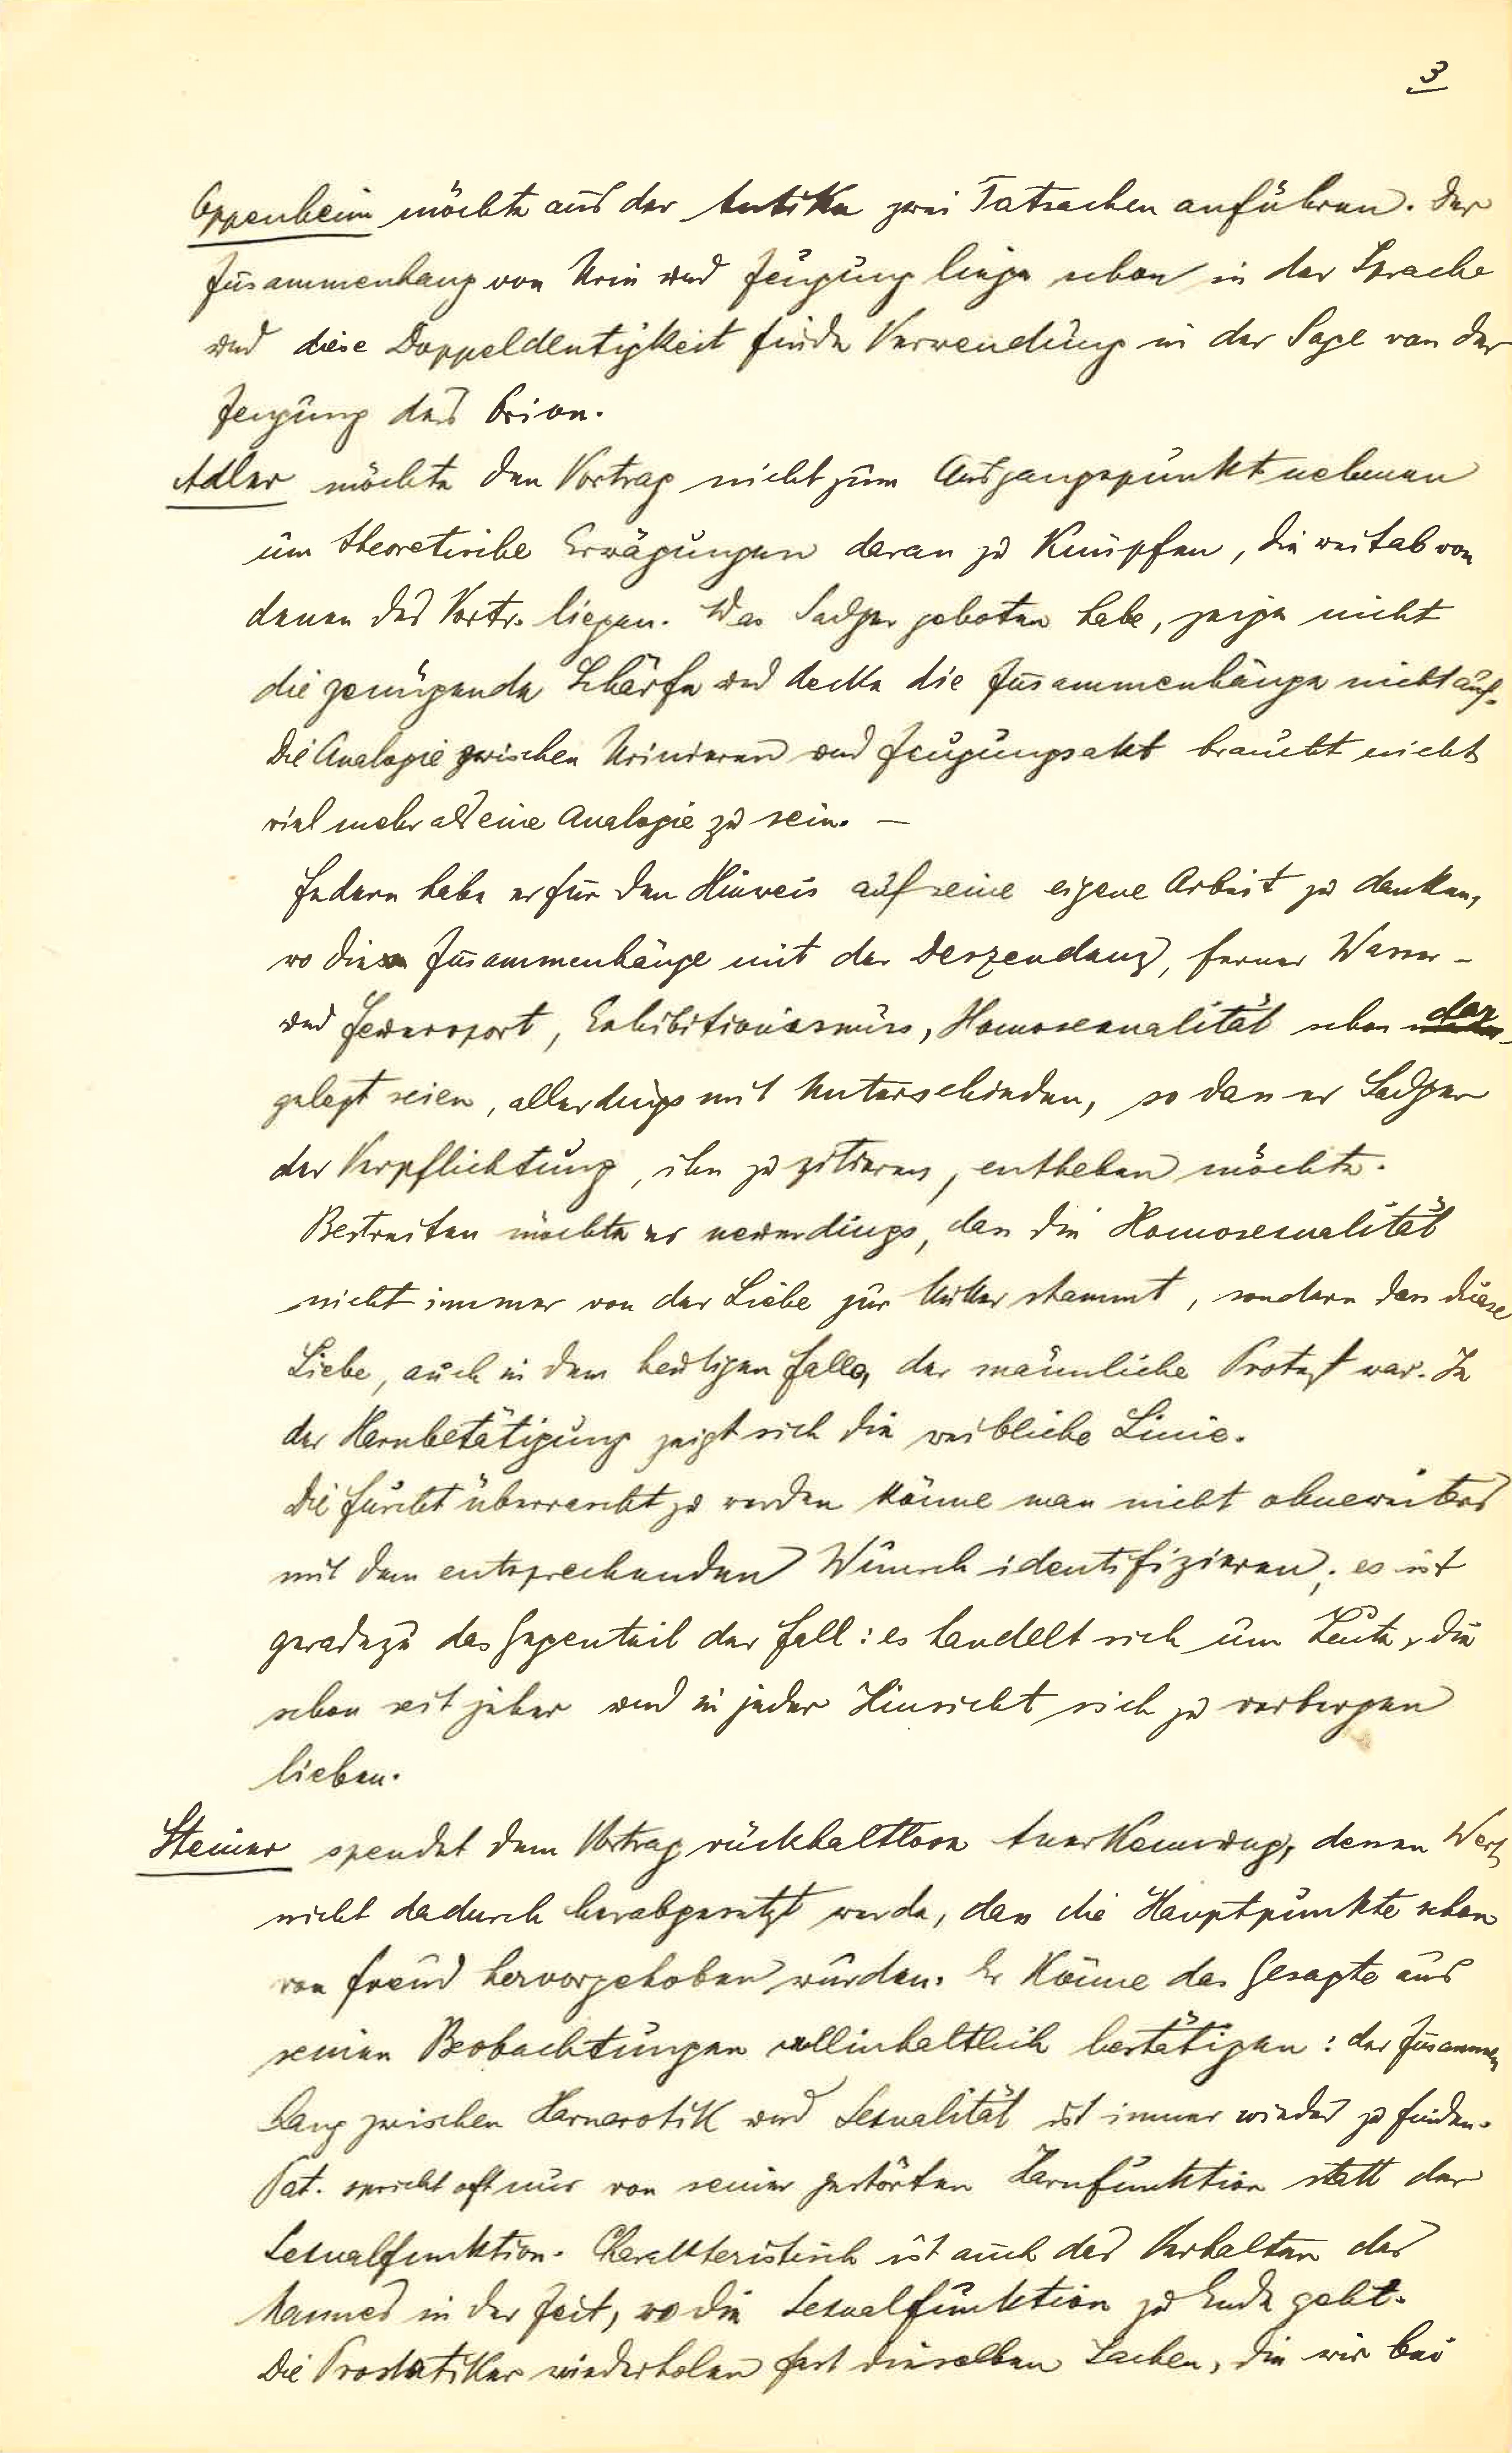 3
Oppenheim möchte aus der Antike zwei Tatsachen anführen. Der
Zusammenhang von Urin und Zeugung liege schon in der Sprache
und diese Doppeldeutigkeit finde Verwendung in der Sage von der
Zeugung des Orion.
Adler möchte den Vortrag nicht zum Ausgangspunkt nehmen
um theoretische Erwägungen daran zu knüpfen, die weitab von
denen des Vortr. liegen. Was Sadger geboten habe, zeige nicht
die genügende Schärfe und decke die Zusammenhänge nicht auf.
Die Analogie zwischen Urinieren und Zeugungsakt braucht nicht
viel mehr als eine Analogie zu sein. —
Federn habe er für den Hinweis auf seine eigene Arbeit zu danken,
wo diese Zusammenhänge mit der Deszendenz, ferner Wasser-
und Feuersport, Exhibitionismus, Homosexualität schon dar
gelegt seien, allerdings mit Unterschieden, so dass er Sadger
der Verpflichtung, ihn zu zitieren, entheben möchte.
Bestreiten möchte er neuerdings, dass die Homosexualität
nicht immer von der Liebe zur Mutter stammt, sondern dass diese
Liebe, auch in dem heutigen Falle, der männliche Protest war. In
der Harnbetätigung zeigt sich die weibliche Linie.
Die Furcht überrascht zu werden könne man nicht ohneweiters
mit dem entsprechenden Wunsch identifizieren; es ist
geradezu das Gegenteil der Fall: es handelt sich um Leute, die
schon seit jeher und in jeder Hinsicht sich zu verbergen
lieben.
Steiner spendet dem Vortrag rückhaltlose Anerkennung, dessen Wert
nicht dadurch herabgesetzt werde, dass die Hauptpunkte schon
von Freud hervorgehoben wurden. Er könne das Gesagte aus
seinen Beobachtungen vollinhaltlich bestätigen: der Zusammen
hang zwischen Harnerotik und Sexualität ist immer wieder zu finden.
Pat. spricht oft nur von seiner gestörten Harnfunktion statt der
Sexualfunktion. Charakteristisch ist auch das Verhalten des
Mannes in der Zeit, wo die Sexualfunktion zu Ende geht.
Die Prostatiker wiederholen fast dieselben Sachen, die wir bei